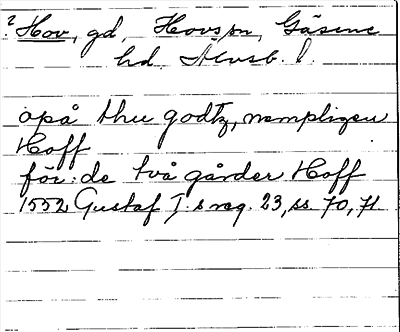 ? Hov, gd, Hovs sn, Gäsene
hd. Älvsb. l.
opå thu godtz, nempligen
Hoff
för: de två gårder Hoff
1552 Gustaf I:s reg. 23, ss. 70, 71